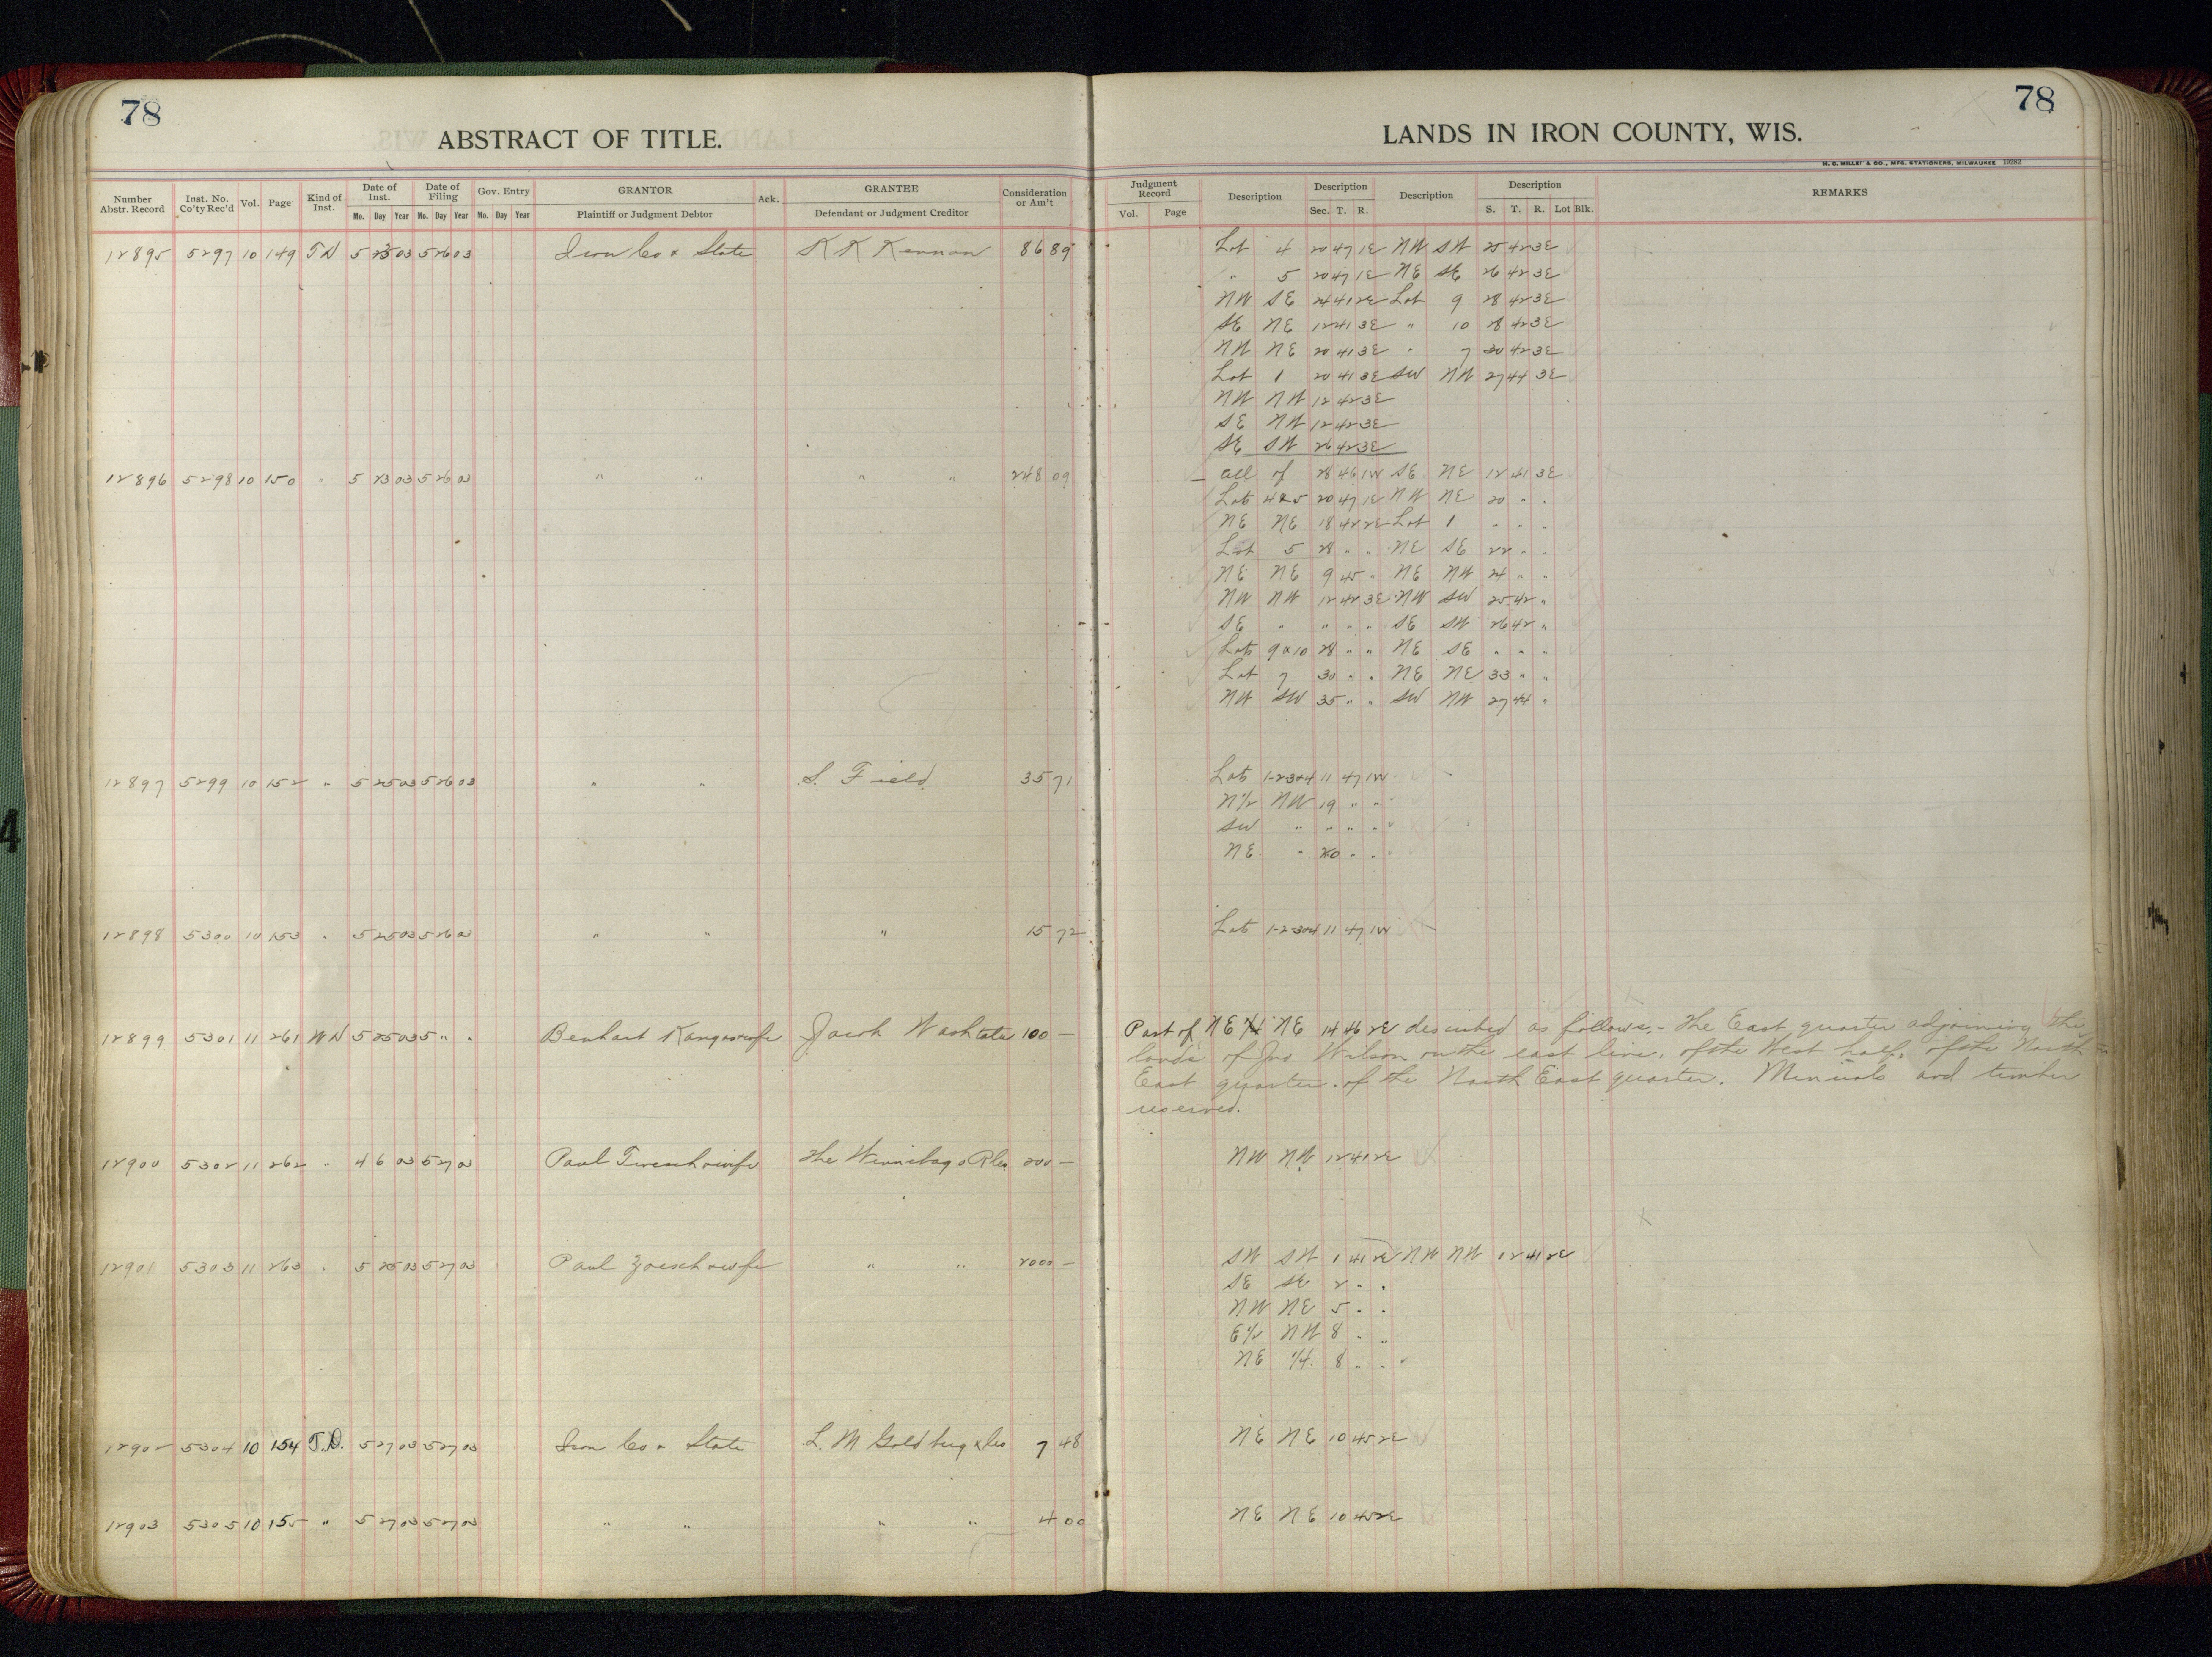 78
ABSTRACT OF TITLE.
Number Abstr. Record | Inst. No. Co'ty Rec'd | Vol. | Page | Kind of Inst. | Date of Inst. Mo. Day Year | Date of Filing Mo. Day Year | Gov. Entry Mo. Day Year | GRANTOR Plaintiff or Judgment Debtor | Ack. | GRANTEE Defendant or Judgment Creditor | Consideration or Am't
12895 5297 10 149 TD 5 23 03 5 26 03 Iron Co & State K K Kennan 86 89
12896 5298 10 150 " 5 23 03 5 26 03 " " " " 248 09
12897 5299 10 152 " 5 25 03 5 26 03 " " S. Field 35 71
12898 5300 10 153 " 5 25 03 5 26 03 " " " 15 72
12899 5301 11 261 WD 5 25 03 5 " " Benhart & wife Jacob 100 —
12900 5302 11 262 " 4 6 03 5 27 03 Paul & wife The Winnebago 200 —
12901 5303 11 263 " 5 25 03 5 27 03 Paul Zoesch & wife " " 2000 —
12902 5304 10 154 T.D. 5 27 03 5 27 03 Iron Co & State L. M Goldberg & Co 7 48
12903 5305 10 155 " 5 27 03 5 27 03 " " " " 4 00
78
LANDS IN IRON COUNTY, WIS.
H. C. MILLER & CO., MFG. STATIONERS, MILWAUKEE 19282
Judgment Record Vol. Page | Description | Description Sec. T. R. | Description | Description S. T. R. Lot Blk. | REMARKS
Lot 4 20 47 1E NW SW 25 42 3E
" 5 20 47 1E NE SE 26 42 3E
NW SE 24 41 2E Lot 9 28 42 3E
SE NE 12 41 3E " 10 28 42 3E
NW NE 20 41 3E " 7 30 42 3E
Lot 1 20 41 3E SW NW 27 44 3E
NW NW 12 42 3E
SE NW 12 42 3E
SE SW 26 42 3E
All of 28 46 1W SE NE 12 41 3E
Lots 4 & 5 20 47 1E NW NE 20 " "
NE NE 18 42 2E Lot 1 " " "
Lot 5 28 " " NE SE 22 " "
NE NE 9 45 " NE NW 24 " "
NW NW 12 42 3E NW SW 25 42 "
SE " " " " SE SW 26 42 "
Lots 9 & 10 28 " " NE SE " " "
Lot 7 30 " " NE NE 33 " "
NW SW 35 " " SW NW 27 44 "
Lots 1-2 3 & 4 11 47 1W
N 1/2 NW 19 " "
SW " " " "
NE " 20 " "
Lots 1-2 3 & 4 11 47 1W
Part of NE 1/4 NE 14 46 2E described as follows, - The East quarter adjoining the
lands of Jno Wilson on the east line, of the West half, of the North
East quarter of the North East quarter. Minerals and timber
reserved.
NW NW 12 41 2E
SW SW 1 41 2E NW NW 12 41 2E
SE SE 2 " "
NW NE 5 " "
E 1/2 NW 8 " "
NE 1/4 8 " "
NE NE 10 45 2E
NE NE 10 45 2E